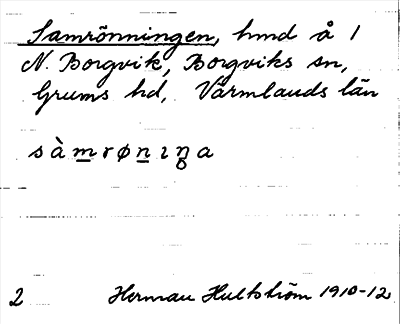 Samrönningen, hmd å 1
N. Borgvik, Borgviks sn,
Grums hd, Värmlands län
sàm̲røn̲ıŋa
2 Herman Hultström 1910-12